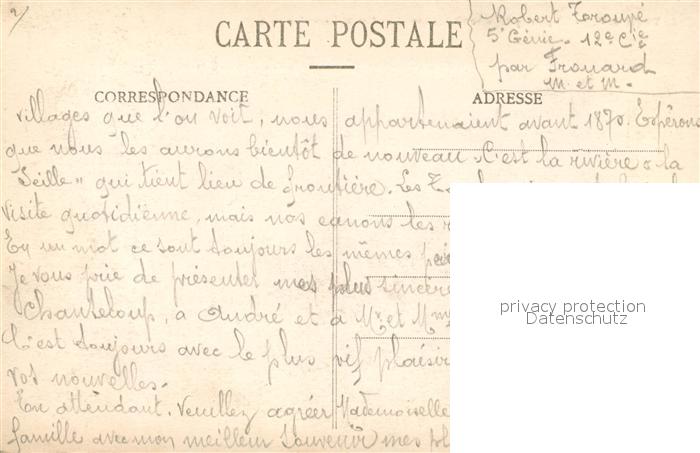 2/
CARTE POSTALE
Robert Taroupé
5e Génie - 12e Cie
par Frouard
M. et M.
CORRESPONDANCE
ADRESSE
villages que l'on voit, nous appartenaient avant 1870. Espérons
que nous les aurons bientôt de nouveau. C'est la rivière "la
Seille" qui tient lieu de frontière. Les
visite quotidienne, mais nos canons les
En un mot ce sont toujours les mêmes
Je vous prie de présenter mes plus sincère
Chanteloup, a André et à Mr et Mme
C'est toujours avec le plus vif plaisir
vos nouvelles.
En attendant. Veuillez agréer Mademoiselle
famille avec mon meilleur Souvenir mes
privacy protection
Datenschutz